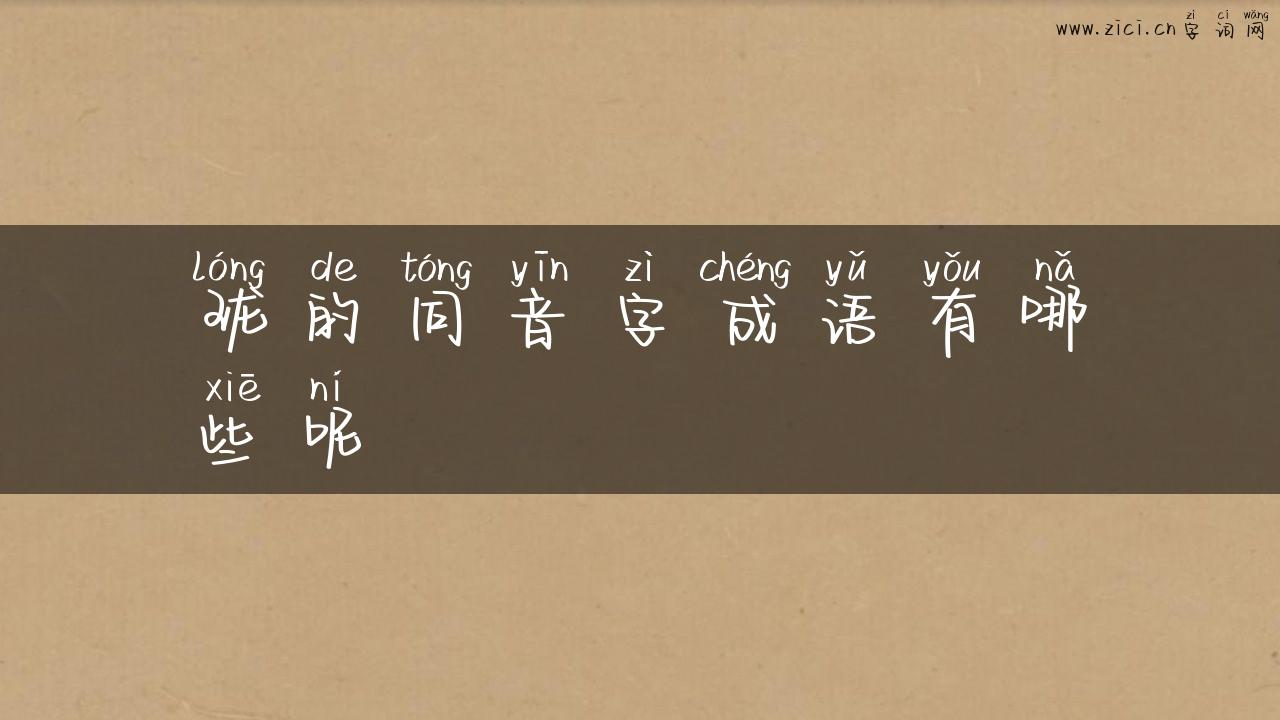 www.zici.cn zì cí wǎng
字词网
lóng de tóng yīn zì chéng yǔ yǒu nǎ
珑的同音字成语有哪
xiē ní
些呢